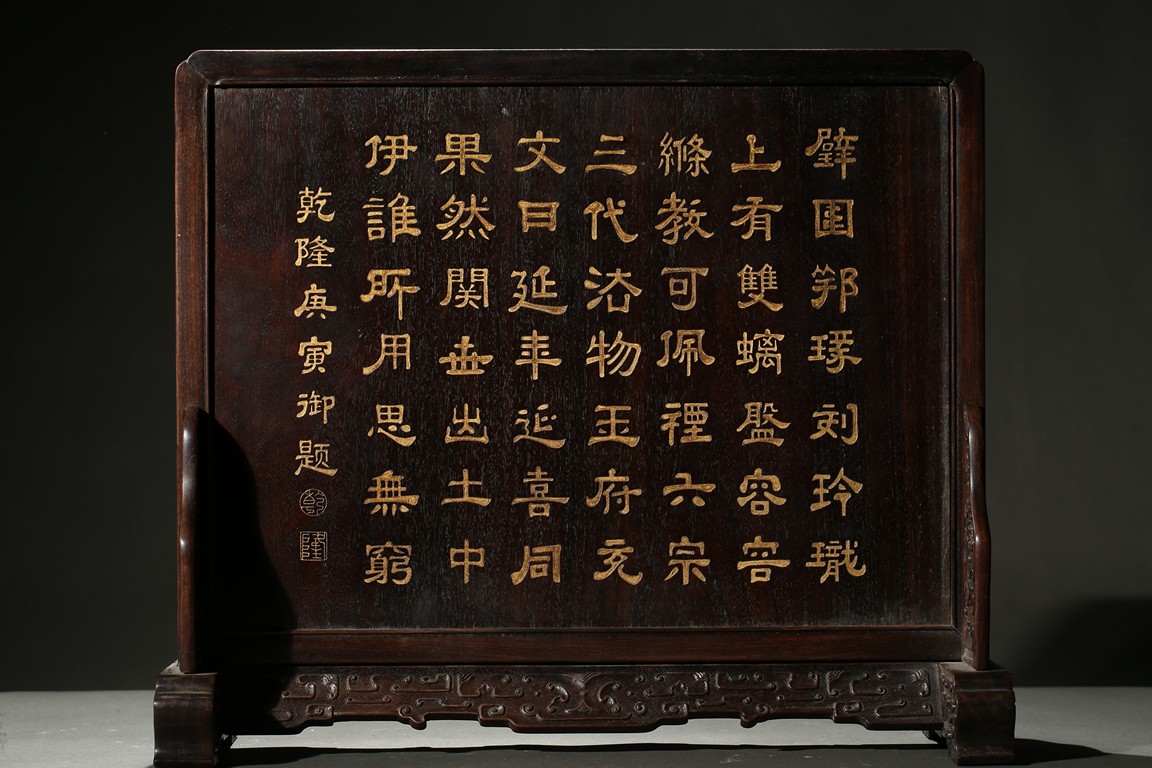 璧圍瑑刻玲瓏
上有雙螭盤容容
絛教可佩禋六宗
三代法物玉府充
文曰延年延喜同
果然関世出土中
伊誰所用思無窮
乾隆庚寅御題
隆